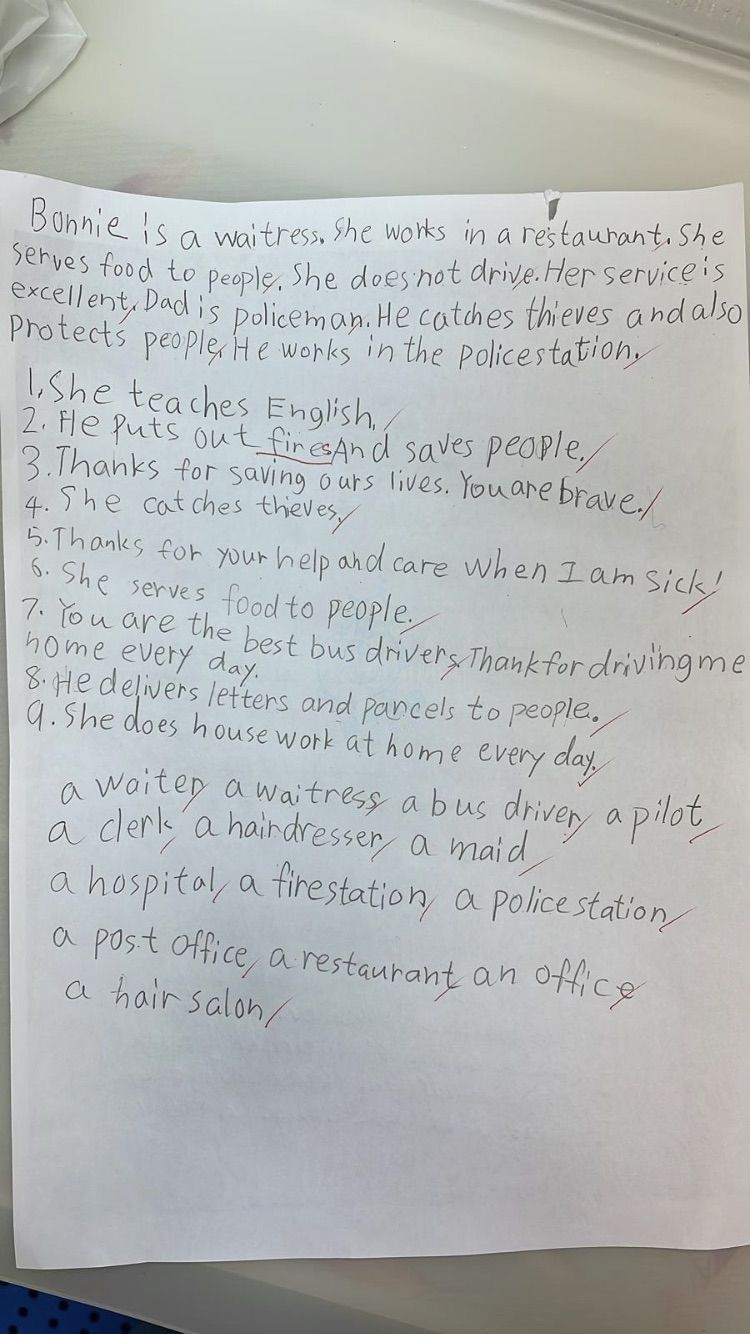 Bonnie is a waitress. She works in a restaurant. She
serves food to people. She does not drive. Her service is
excellent, Dad is policeman. He catches thieves and also
protects people, He works in the police station.
1. She teaches English.
2. He puts out fires And saves people.
3. Thanks for saving ours lives. You are brave.
4. She catches thieves.
5. Thanks for your help and care when I am sick!
6. She serves food to people.
7. You are the best bus drivers, Thank for driving me
home every day.
8. He delivers letters and pancels to people.
9. She does house work at home every day.
a waiter, a waitress, a bus driver, a pilot
a clerk, a hairdresser, a maid
a hospital, a firestation, a police station
a post office, a restaurant, an office
a hair salon